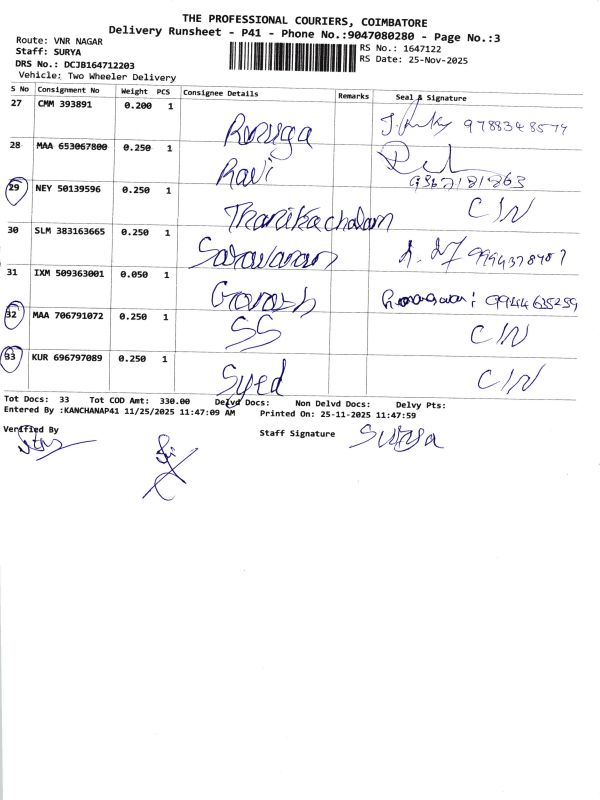 THE PROFESSIONAL COURIERS, COIMBATORE
Delivery Runsheet - P41 - Phone No.:9047080280 - Page No.:3
Route: VNR NAGAR
Staff: SURYA
RS No.: 1647122
DRS No.: DCJB164712203
RS Date: 25-Nov-2025
Vehicle: Two Wheeler Delivery
S No Consignment No Weight PCS Consignee Details Remarks Seal & Signature
27 CMM 393891 0.200 1 Renuga 9788348574
28 MAA 653067800 0.250 1 Ravi 9362181863
29 NEY 50139596 0.250 1 Thanikachalam C/N
30 SLM 383163665 0.250 1 Saravanan
31 IXM 509363001 0.050 1 Ganesh 9944635259
32 MAA 706791072 0.250 1 SS C/N
33 KUR 696797089 0.250 1 Syed C/N
Tot Docs: 33 Tot COD Amt: 330.00 Delvd Docs: Non Delvd Docs: Delvy Pts:
Entered By :KANCHANAP41 11/25/2025 11:47:09 AM Printed On: 25-11-2025 11:47:59
Verified By
Staff Signature Surya